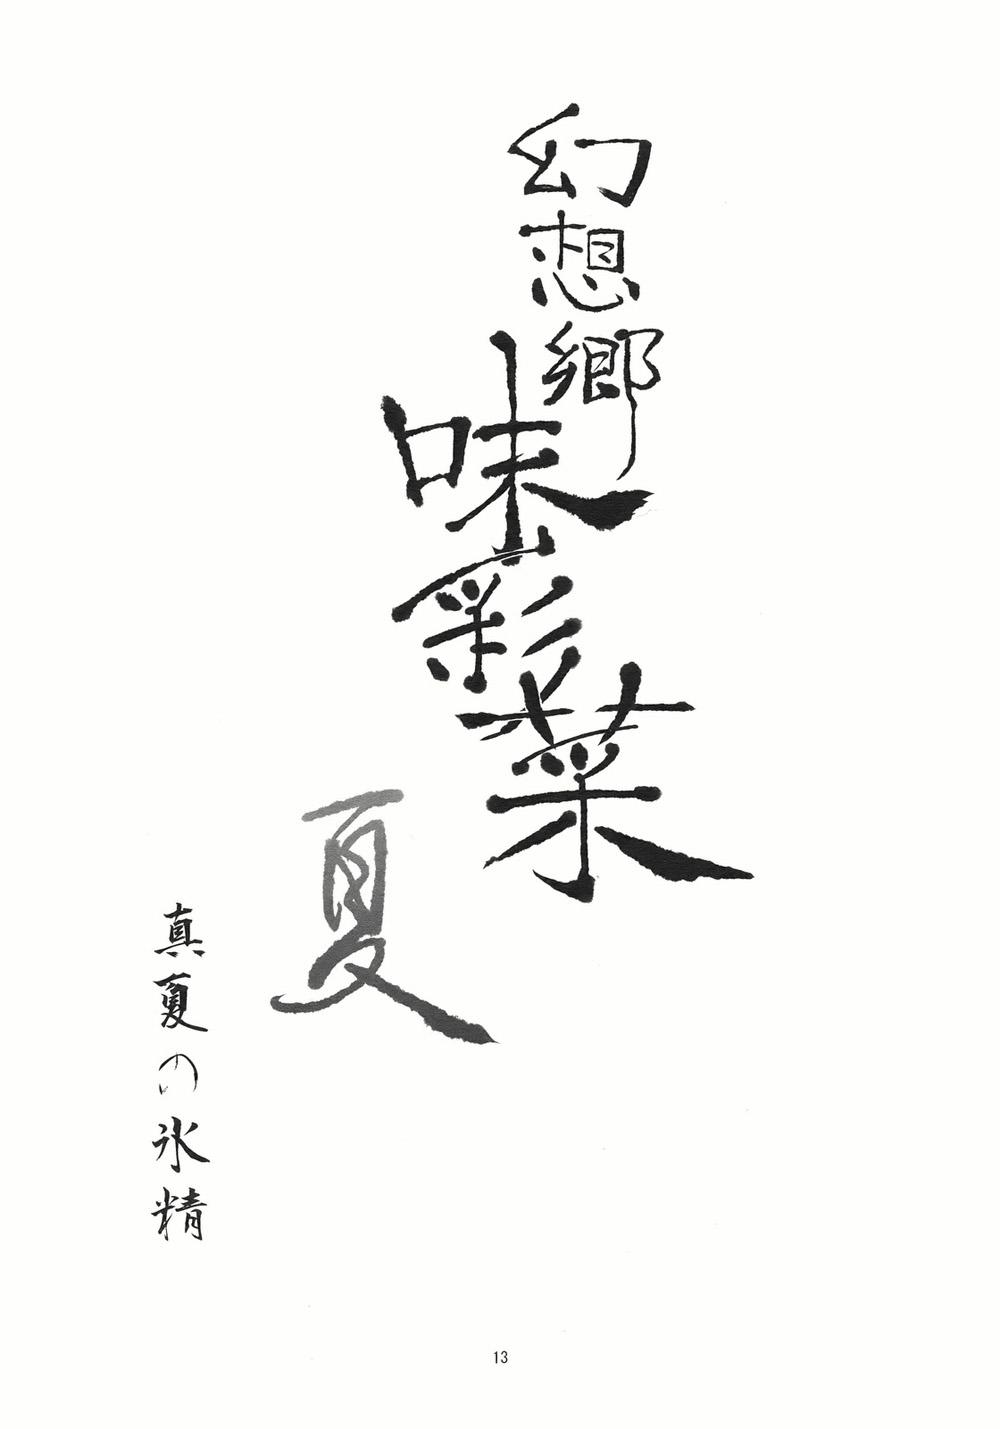 幻想郷
味彩菜
夏
真夏の氷精
13